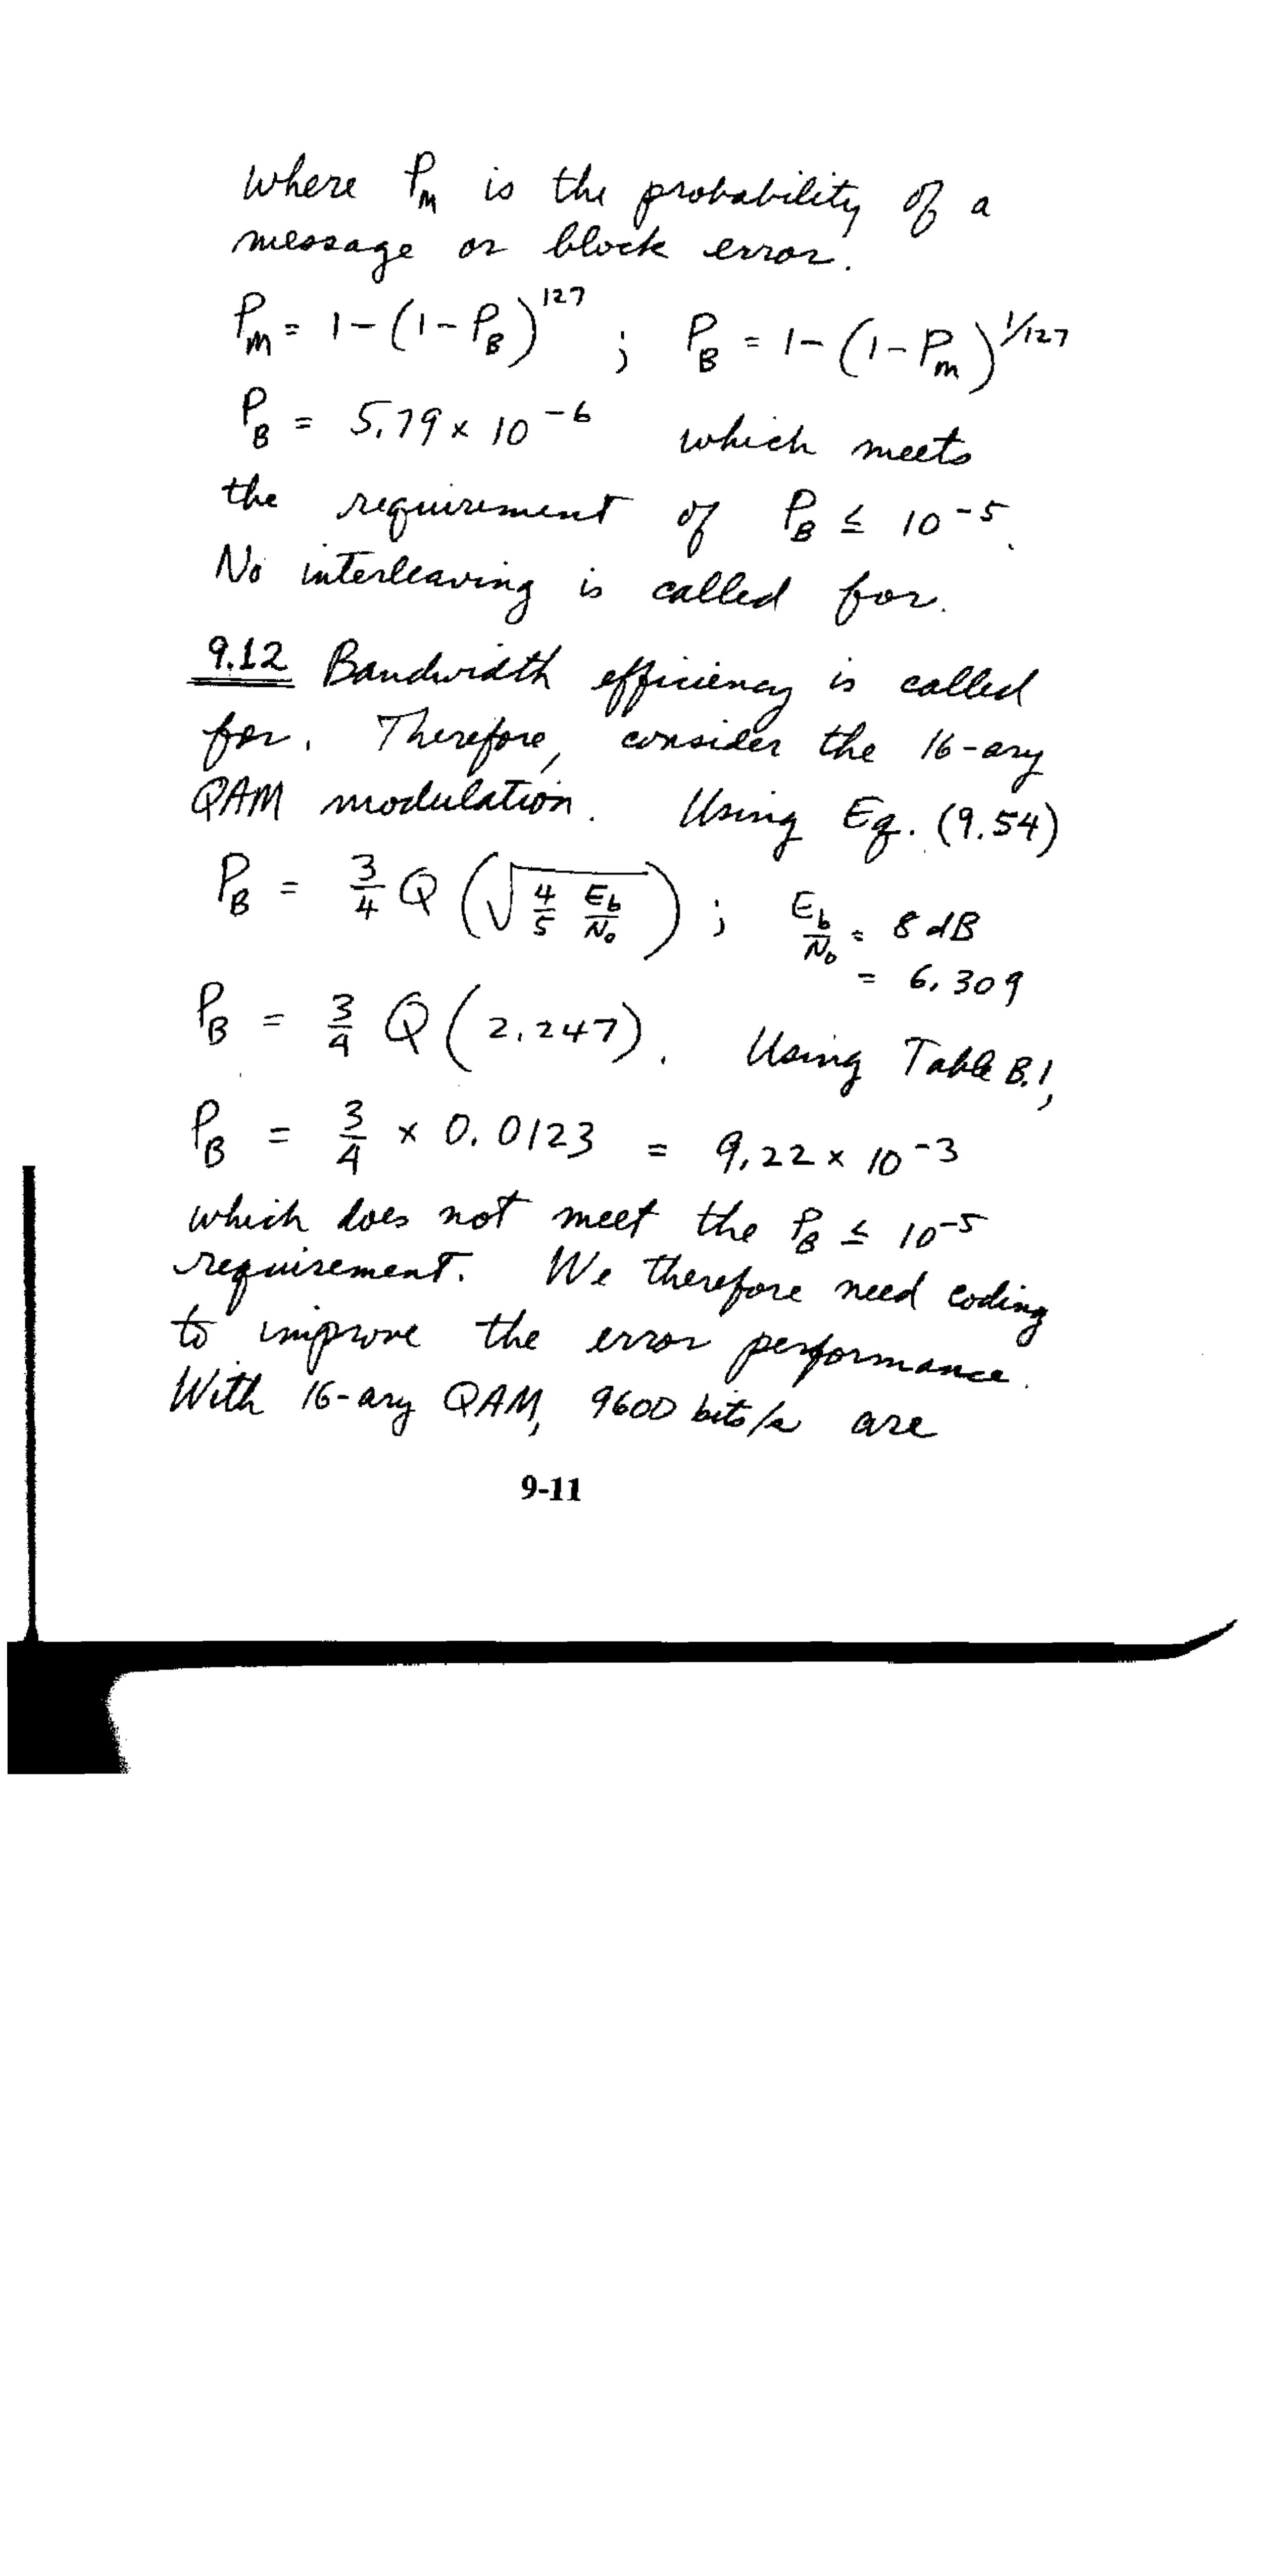 where P_M is the probability of a
message or block error.
P_M = 1-(1-P_B)^127 ; P_B = 1-(1-P_m)^1/127
P_B = 5.79 x 10^-6 which meets
the requirement of P_B ≤ 10^-5.
No interleaving is called for.
9.12 Bandwidth efficiency is called
for. Therefore, consider the 16-ary
QAM modulation. Using Eq. (9.54)
P_B = 3/4 Q (√(4/5 E_b/N_0)) ; E_b/N_0 = 8 dB
= 6.309
P_B = 3/4 Q (2.247). Using Table B.1,
P_B = 3/4 x 0.0123 = 9.22 x 10^-3
which does not meet the P_B ≤ 10^-5
requirement. We therefore need coding
to improve the error performance.
With 16-ary QAM, 9600 bits/s are
9-11